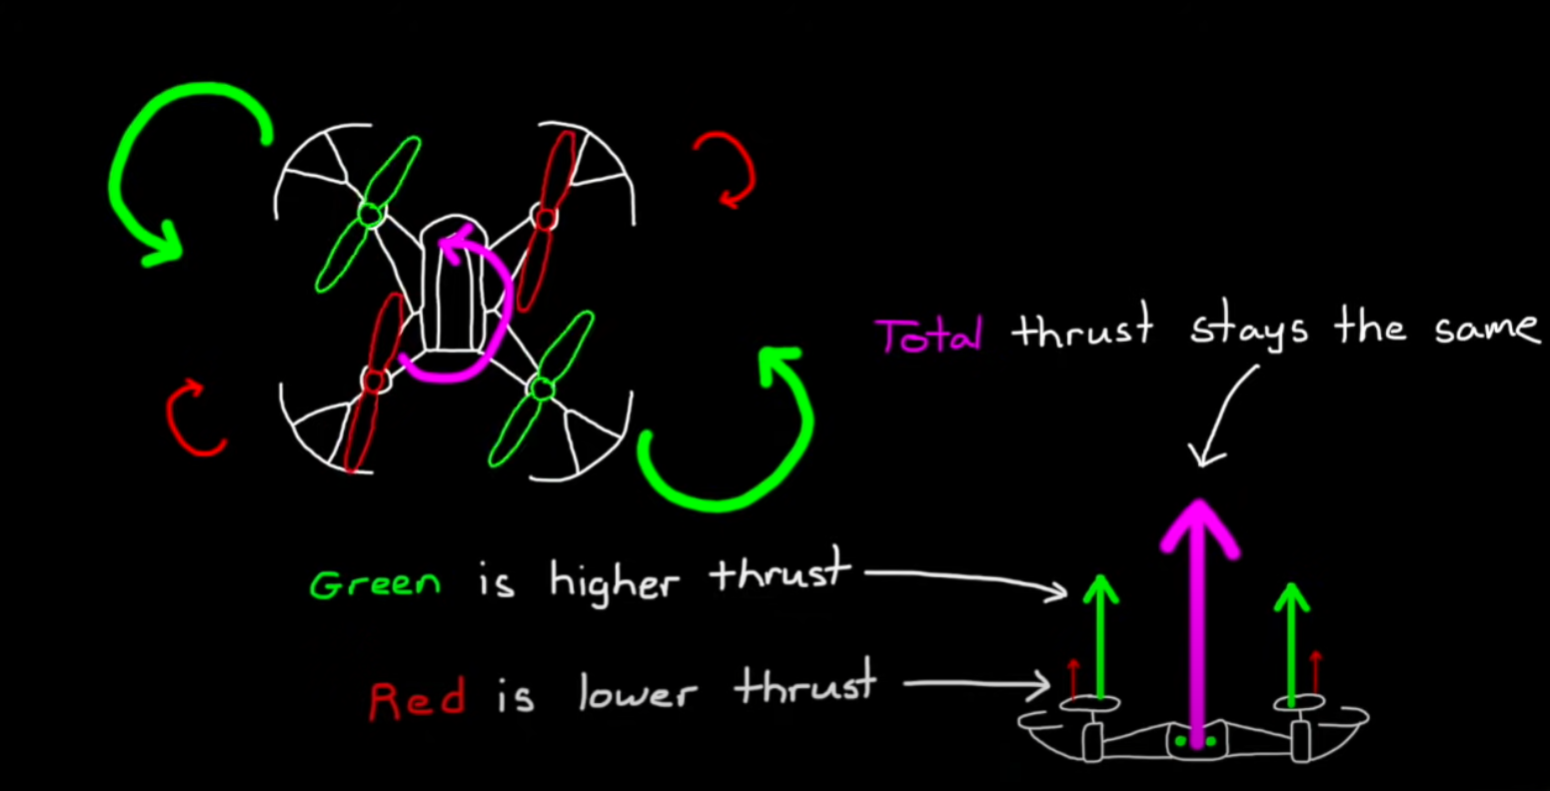 Total thrust stays the same
Green is higher thrust
Red is lower thrust